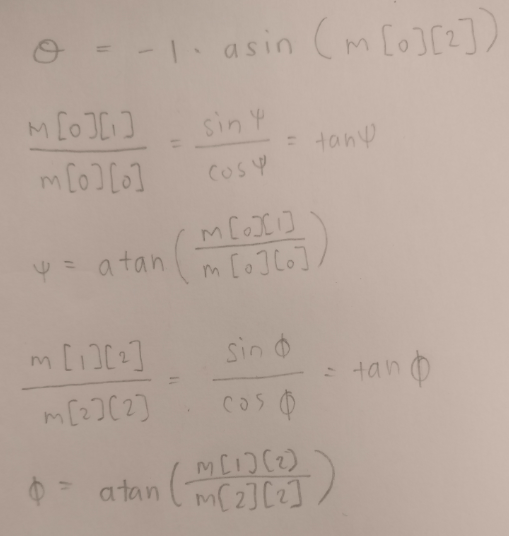 θ = -1 · asin (m[0][2])
m[0][1] / m[0][0] = sin ψ / cos ψ = tan ψ
ψ = atan (m[0][1] / m[0][0])
m[1][2] / m[2][2] = sin φ / cos φ = tan φ
φ = atan (m[1][2] / m[2][2])